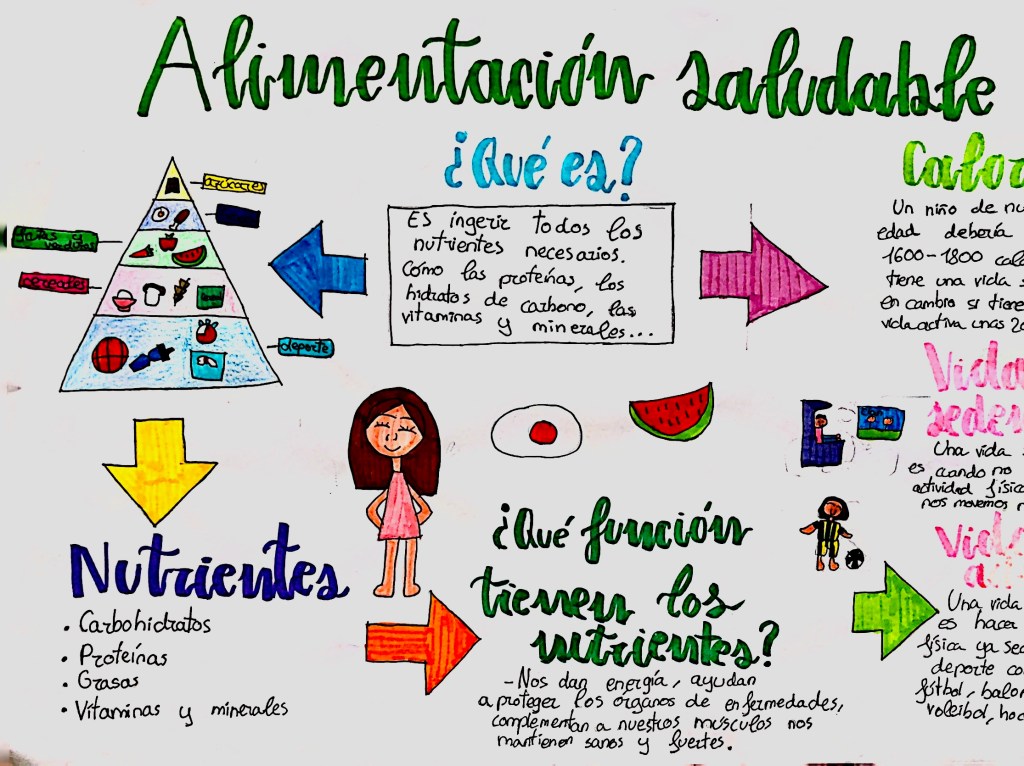 Alimentación saludable
¿Qué es?
Es ingerir todos los
nutrientes necesarios.
Cómo las proteínas, los
hidratos de carbono, las
vitaminas y minerales...
azúcares
y verduras
cereales
deporte
Un niño de
edad debería
1600-1800
tiene una vida
en cambio si tiene
vida activa unas
Vida
Una vida
es cuando no
actividad
nos movemos
Una vida
es hacer
física ya
deporte
fútbol,
voleibol,
Nutrientes
• Carbohidratos
• Proteínas
• Grasas
• Vitaminas y minerales
¿Qué función
tienen los
nutrientes?
-Nos dan energía, ayudan
a proteger los órganos de enfermedades,
complementan a nuestros músculos nos
mantienen sanos y fuertes.